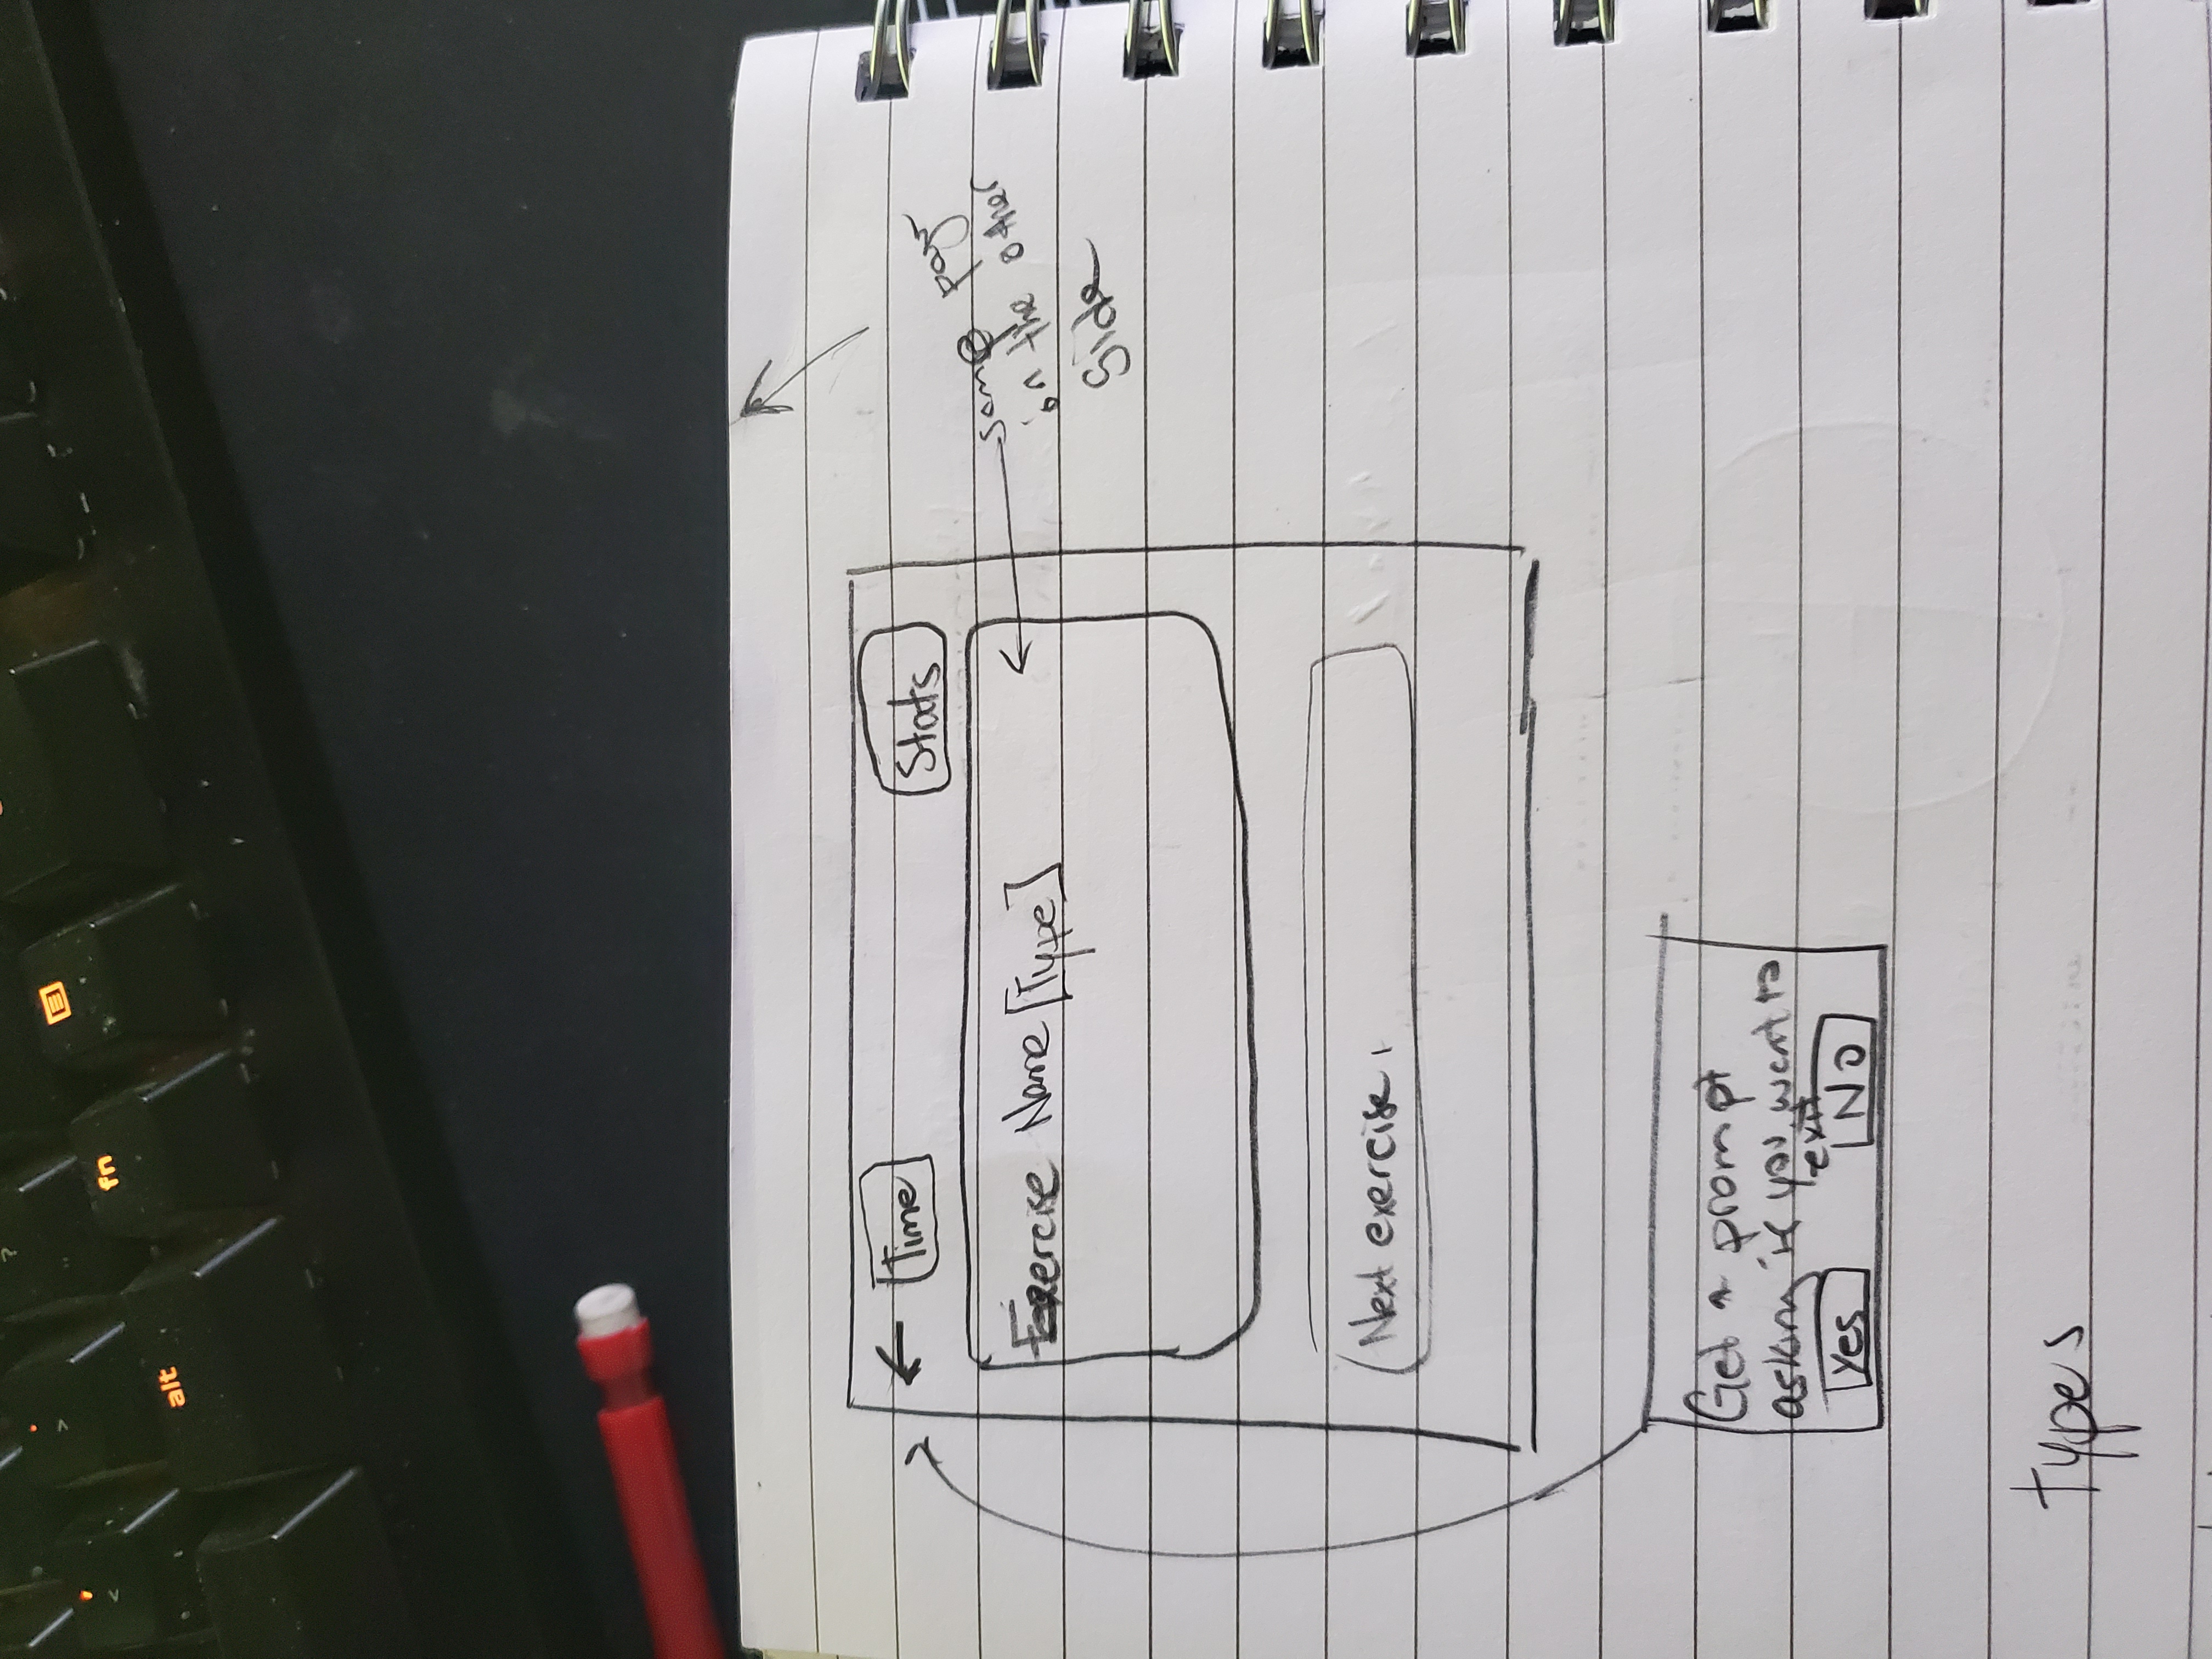 ?
>
<
fn
alt
Time
Stats
Exercise Name [Type]
same page
in the other
side
Next exercise
Get a prompt
asking if you want to
exit
Yes
No
types